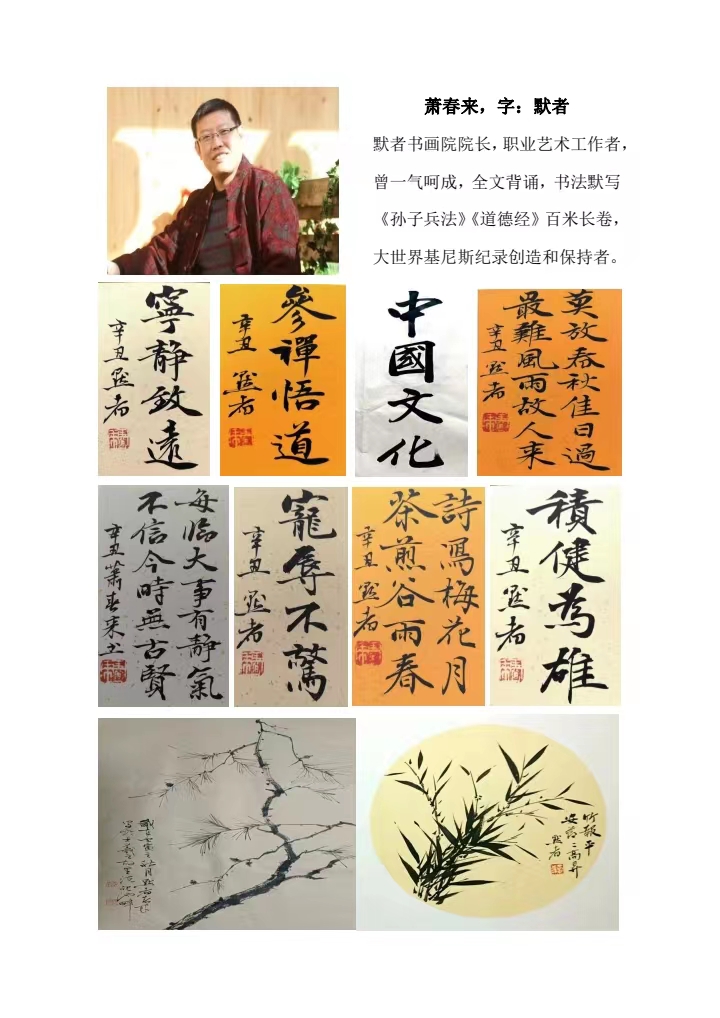 萧春来，字：默者
默者书画院院长，职业艺术工作者，
曾一气呵成，全文背诵，书法默写
《孙子兵法》《道德经》百米长卷，
大世界基尼斯纪录创造和保持者。
寧静致遠
辛丑 默者
參禪悟道
辛丑 默者
中國文化
莫放春秋佳日過
最難風雨故人来
辛丑 默者
每临大事有静氣
不信今時無古賢
辛丑萧春来书
寵辱不驚
辛丑 默者
詩寫梅花月
茶煎谷雨春
辛丑 默者
積健為雄
辛丑 默者
竹報平
安 節節高昇
默者